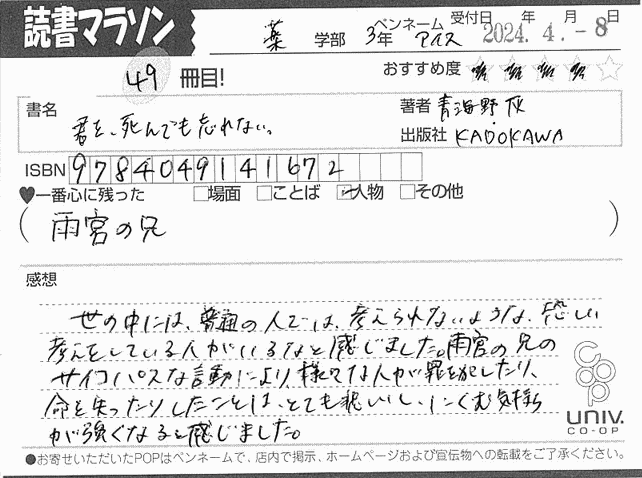 読書マラソン
薬 学部 3年 ペンネーム アイス 受付日 年 月 日
2024. 4. - 8
49 冊目!
おすすめ度
書名 君を、死んでも忘れない。
著者 青海野 灰
出版社 KADOKAWA
ISBN 9784049141672
♥一番心に残った □場面 □ことば □人物 □その他
( 雨宮の兄 )
感想
世の中には、普通の人では、考えられないような、恐い
考えをしている人がいるなと感じました。雨宮の兄の
サイコパスな言動により、様々な人が罪を犯したり、
命を失ったりしたことは、とても悲しいし、にくむ気持ち
が強くなると感じました。
coop
UNIV.
CO-OP
●お寄せいただいたPOPはペンネームで、店内で掲示、ホームページおよび宣伝物への転載をご了承ください。